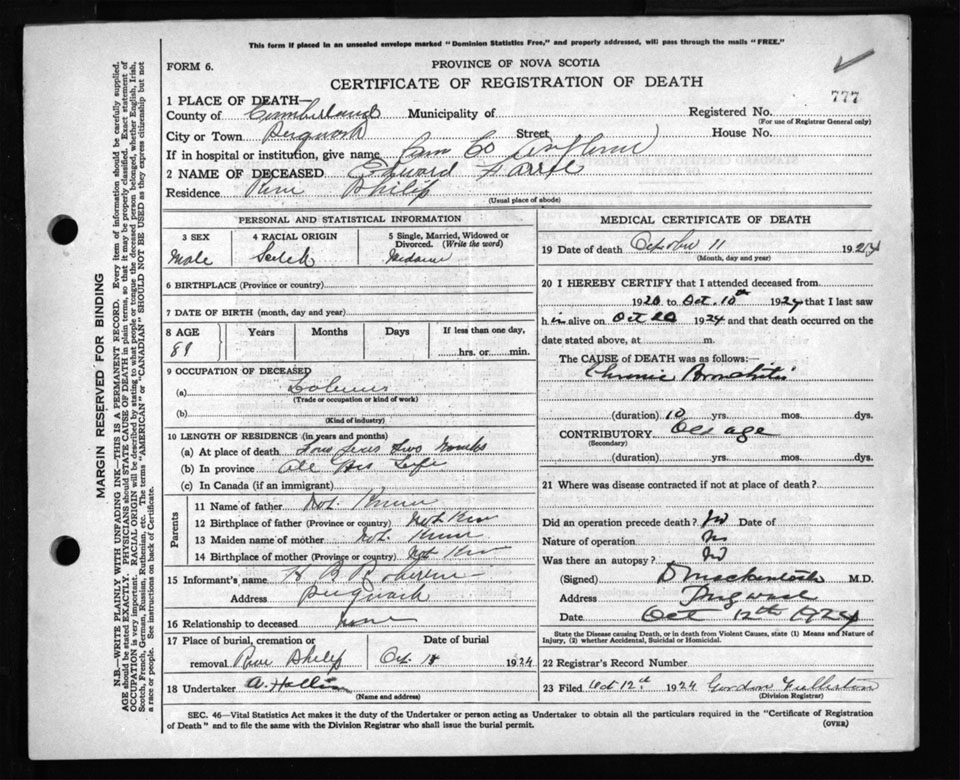 This form if placed in an unsealed envelope marked "Dominion Statistics Free," and properly addressed, will pass through the mails "FREE."
FORM 6.
PROVINCE OF NOVA SCOTIA
CERTIFICATE OF REGISTRATION OF DEATH
777
MARGIN RESERVED FOR BINDING
N.B.—WRITE PLAINLY WITH UNFADING INK—THIS IS A PERMANENT RECORD. Every item of information should be carefully supplied.
AGE should be stated EXACTLY. PHYSICIANS should STATE CAUSE OF DEATH in plain terms, so that it may be properly classified. Exact statement of
OCCUPATION is very important. RACIAL ORIGIN will be described by stating to what people or tongue the deceased person belonged, whether English, Irish,
Scotch, French, German, Russian, Ruthenian, etc. The terms "AMERICAN" or "CANADIAN" SHOULD NOT BE USED as they express citizenship but not
a race or people. See instructions on back of Certificate.
1 PLACE OF DEATH—
County of Cumberland Municipality of Registered No.
(For use of Registrar General only)
City or Town Pugwash Street House No.
If in hospital or institution, give name Cum Co
2 NAME OF DECEASED Edward
Residence Philip
(Usual place of abode)
PERSONAL AND STATISTICAL INFORMATION
3 SEX 4 RACIAL ORIGIN 5 Single, Married, Widowed or Divorced. (Write the word)
Male
6 BIRTHPLACE (Province or country)
7 DATE OF BIRTH (month, day and year)
8 AGE Years Months Days If less than one day,
89 hrs. or min.
9 OCCUPATION OF DECEASED
(a)
(Trade or occupation or kind of work)
(b)
(Kind of industry)
10 LENGTH OF RESIDENCE (in years and months)
(a) At place of death Two Months
(b) In province All His Life
(c) In Canada (if an immigrant)
Parents
11 Name of father Not
12 Birthplace of father (Province or country) Not
13 Maiden name of mother Not
14 Birthplace of mother (Province or country) Not
15 Informant's name H B
Address Pugwash
16 Relationship to deceased none
17 Place of burial, cremation or Date of burial
removal Philip Oct. 1924
18 Undertaker A.
(Name and address)
MEDICAL CERTIFICATE OF DEATH
19 Date of death October 11 1924
(Month, day and year)
20 I HEREBY CERTIFY that I attended deceased from
1920 to Oct. 10th 1924 that I last saw
him alive on Oct 1924 and that death occurred on the
date stated above, at m.
The CAUSE OF DEATH was as follows:
Chronic Bronchitis
(duration) 10 yrs. mos. dys.
CONTRIBUTORY Old age
(Secondary)
(duration) yrs. mos. dys.
21 Where was disease contracted if not at place of death?
Did an operation precede death? No Date of
Nature of operation No
Was there an autopsy? No
(Signed) D Mackintosh M.D.
Address Pugwash
Date Oct 12th 1924
State the Disease causing Death, or in Death from Violent Causes, state (1) Means and Nature of
Injury, (2) whether Accidental, Suicidal or Homicidal.
22 Registrar's Record Number
23 Filed Oct 12th 1924 Gordon
(Division Registrar)
SEC. 46—Vital Statistics Act makes it the duty of the Undertaker or person acting as Undertaker to obtain all the particulars required in the "Certificate of Registration
of Death" and to file the same with the Division Registrar who shall issue the burial permit.
(OVER)